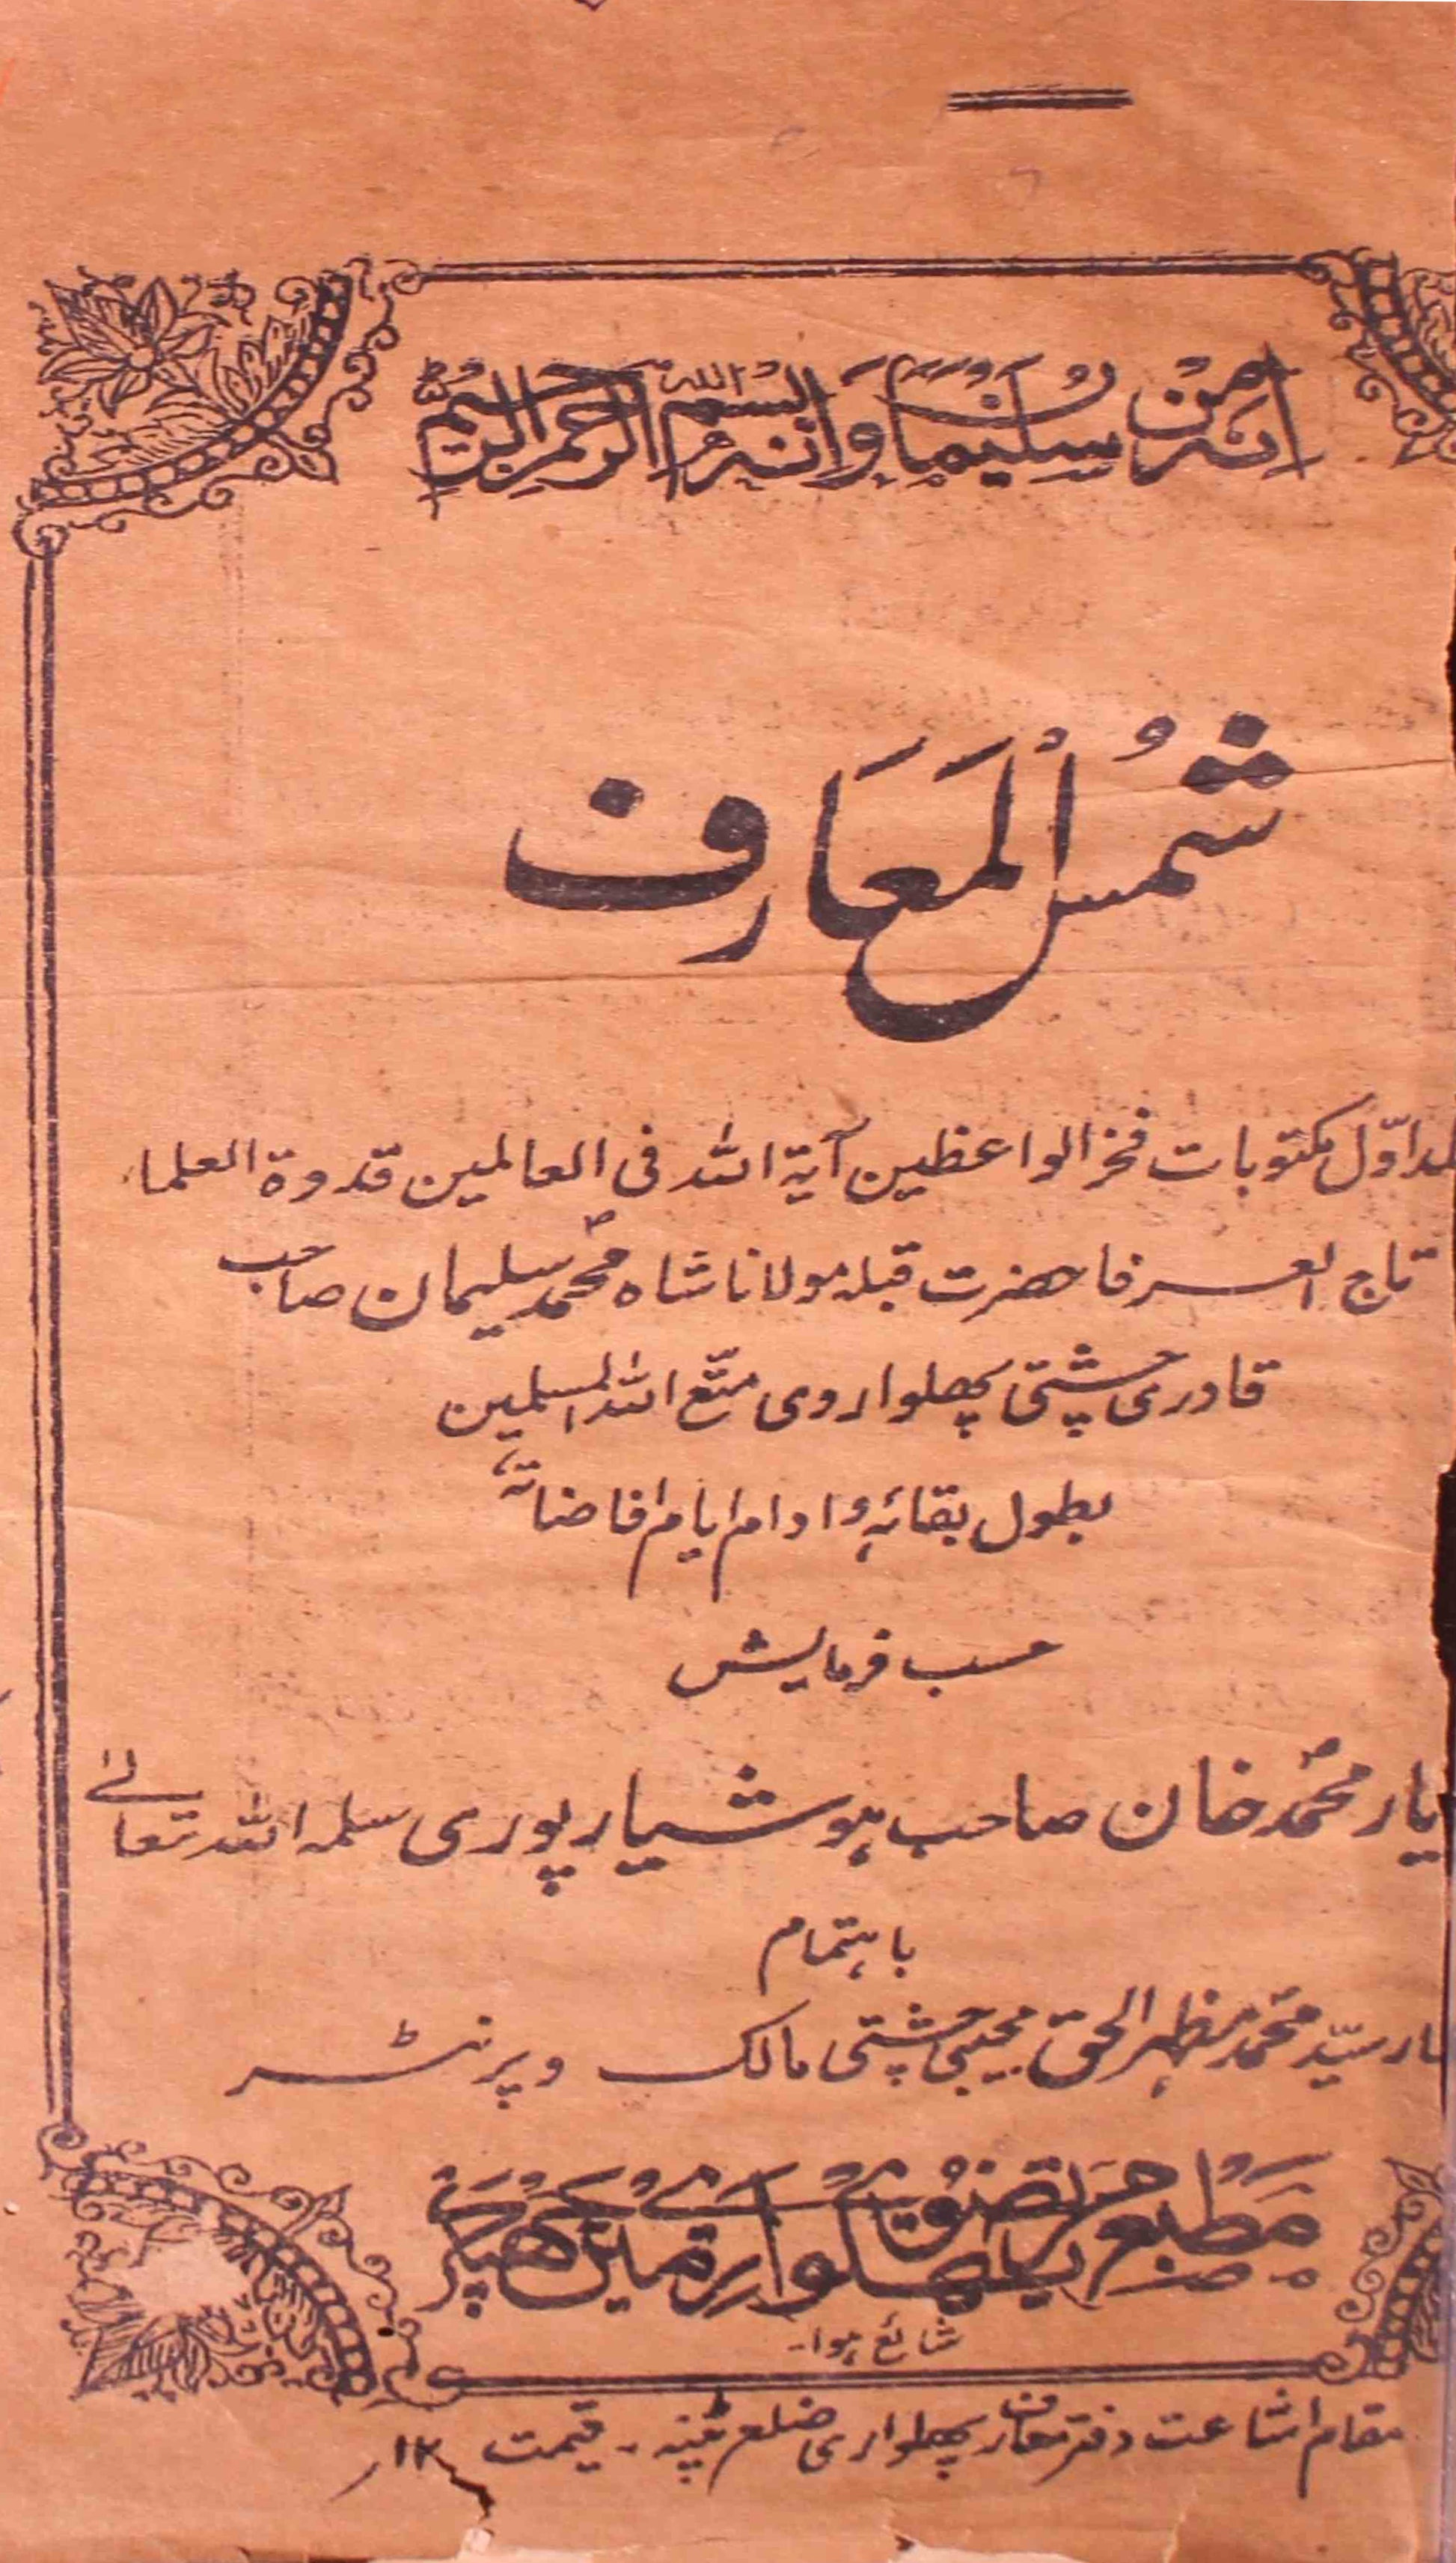 اِنَّهٗ مِنْ سُلَيْمَانَ وَاِنَّهٗ بِسْمِ اللّٰهِ الرَّحْمٰنِ الرَّحِيْمِ
شمسُ الْمَعَارف
اوّل مکتوبات فخرالواعظین آیۃ اللہ فی العالمین قدوۃ العلماء
تاج العرفا حضرت قبلہ مولانا شاہ محمد سلیمان صاحب
قادری چشتی پھلواروی متّع اللہ المسلمین
بطول بقائہٖ وادام ایام افاضاتہٗ
حسب فرمایش
یار محمد خان صاحب ہوشیارپوری سلمہ اللہ تعالےٰ
باہتمام
سیّد محمد مظہرالحق مجیبی چشتی مالک و پرنٹر
مطبع مرتضویہ پھلواری میں چھپکر
شائع ہوا۔
مقام اشاعت دفتر معارف پھلواری ضلع پٹنہ ۔ قیمت ۱۲؍